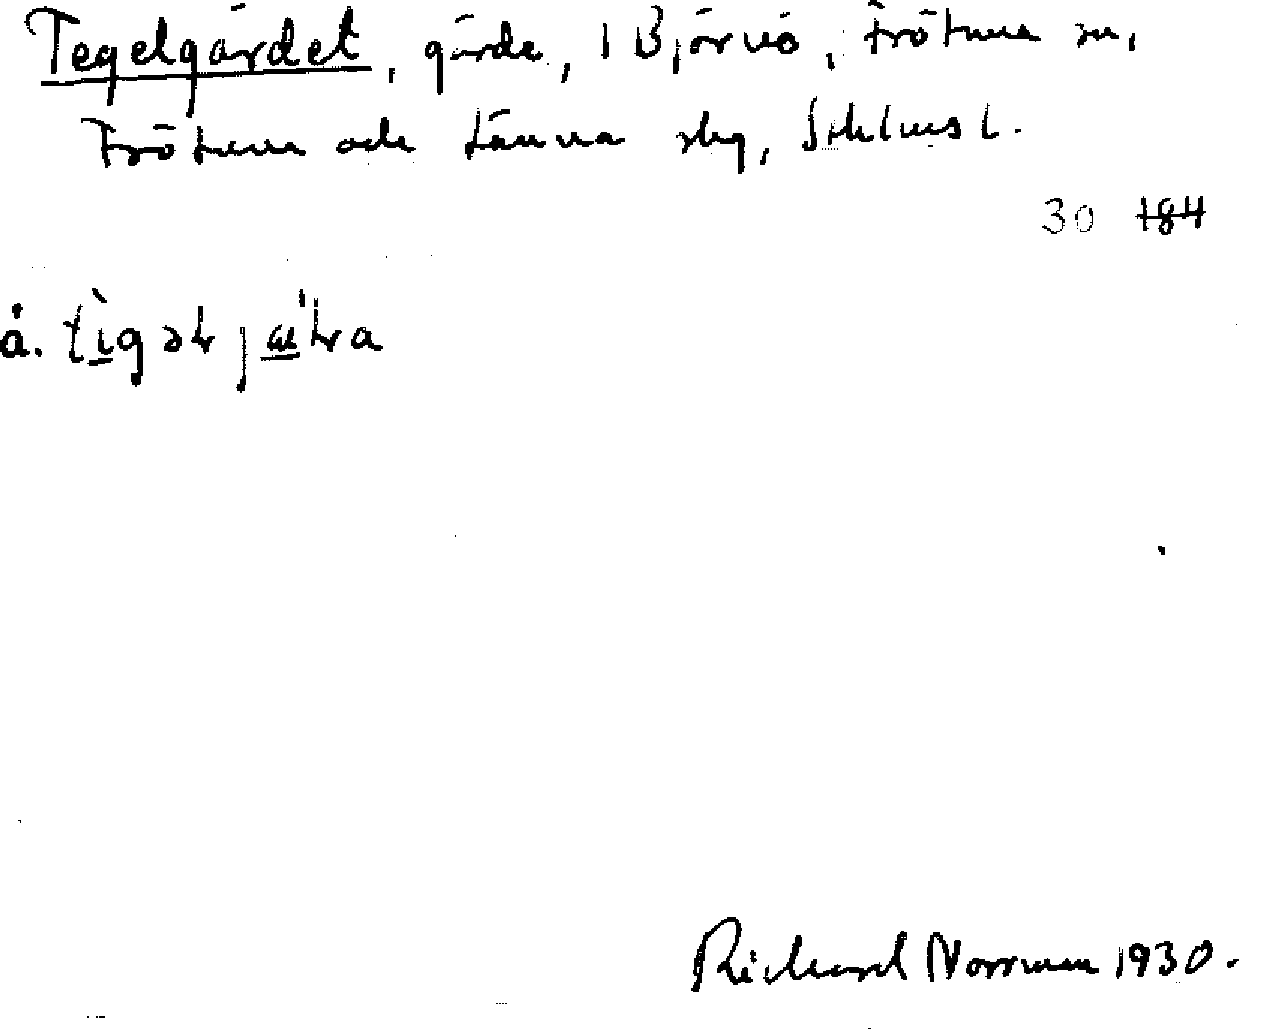 Tegelgärdet, gärde, i Björnö, Frötuna sn,
Frötuna och Länna skg, Sthlms l.
30 184
å. tìgəɫjæ̀ɫa
Richard Norrman 1930.